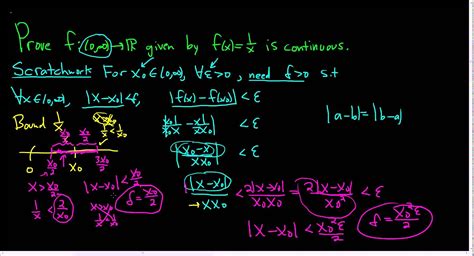 Prove f:(0,∞)→ℝ given by f(x)=1/x is continuous.
Scratchwork For x₀∈(0,∞), ∀ε>0, need δ>0 s.t
∀x∈(0,∞), |x-x₀|<δ, |f(x)-f(x₀)|<ε
Bound 1/x
|x₀/x₀ 1/x - x/(x x₀)| < ε
|a-b|=|b-a|
x₀/2 x₀/2
|x₀-x|/(x x₀) < ε
0 x₀/2 x₀ 3x₀/2
x > x₀/2 |x-x₀| < x₀/2
1/x < 2/x₀
δ = x₀/2
|x-x₀|/(x x₀) < 2|x-x₀|/(x₀ x₀) = 2|x-x₀|/x₀² < ε
|x-x₀| < x₀²ε/2 δ = x₀²ε/2